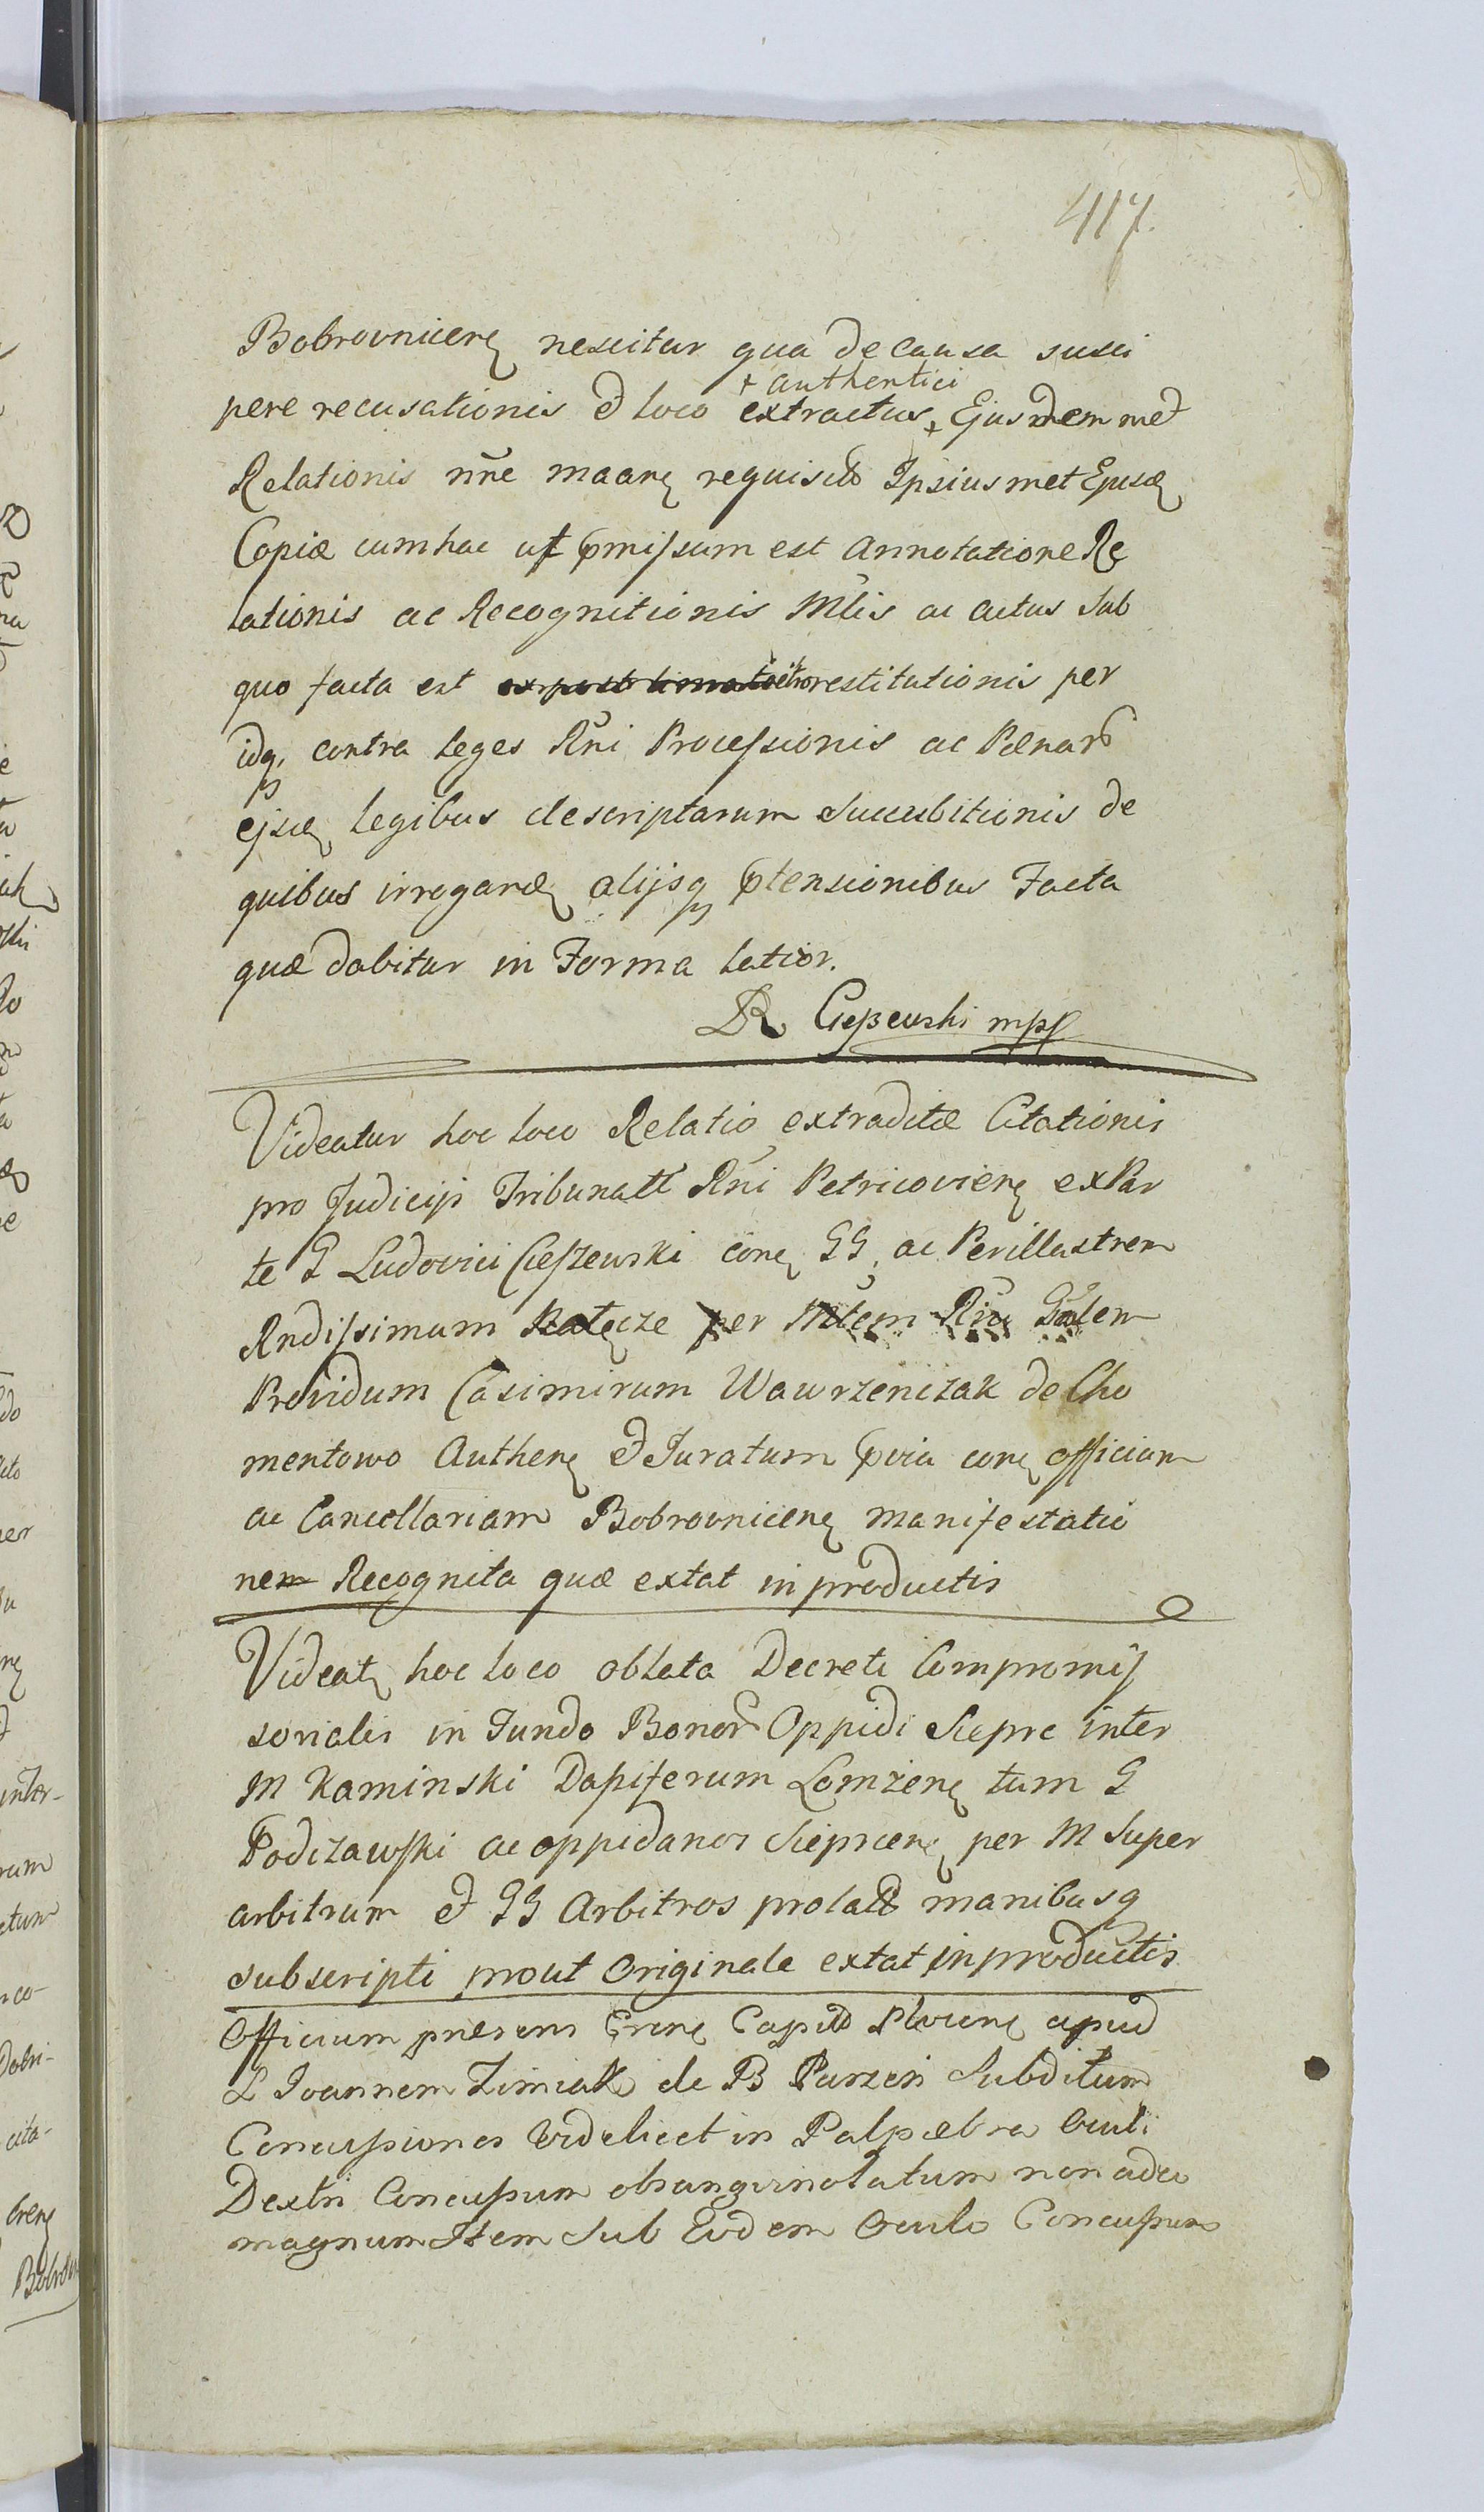 417.
Bobrovnicen nescitur qua de causa susci
+ authentici
pere recusationis et loco extractus + Ejusdem met
Relationis nr̃e maarꝫ requisit Ipsiusmet Ejusd
Copiæ cum hac ut pmissum est Annotatione Re
lationis ac Recognitionis Mlis ac actus sub
quo facta est restitutionis per
idq. contra leges Rni Processionis ac Pœnar
ejsd legibus descriptarum Succubitionis de
quibus irrogand alijsq ptensionibus Facta
quæ dabitur in Forma latior.
LR Cieszewski mpp
Videatur hoc loco Relatio extraditæ Citationis
pro Judicijs Tribunatt Rni Petricovien ex Par
te G Ludovici Cieszewski con GG. ac Perillustrem
Rndissimum per Mlem Rni Gnlem
Providum Casimirum Wawrzeniczak de Cho
mentowo Authen et Juratum pvia con officium
ac Cancellariam Bobrovnicen manifestatio
nem Recognita quæ extat in productis
Videat hoc loco oblata Decreti Compromis
sorialis in Fundo Bonor Oppidi Sierpc inter
M Kaminski Dapiferum Lomzen tum G
Podczawski ac oppidanos Sieprcen per M Super
arbitrum et GG Arbitros prolat manibusq
subscripti prout Originale extat in productis
Officium præsens Cren Capit Plocen apud
L Joannem Zimiak de B Parzen Subditum
Concussiones videlicet in Palpæbra Oculi
Dextri Concussum obsanguinolatum non adeo
magnum Item Sub Eodem Oculo Concussum